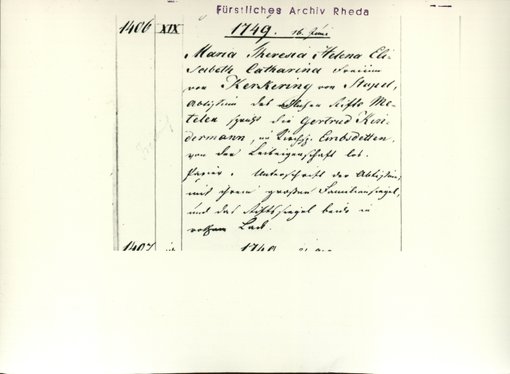 Fürstliches Archiv Rheda
1406 XIX 1749. 16. Juni
Maria Theresia Helena Eli-
sabeth Catharina Freiin
von Kerkering von Stapel,
Abtissin des Stifts Me-
telen spricht die Gertrud Kin-
dermann, im Kirchsp. Embsdetten,
von der Leibeigenschaft los.
Papier. Unterschrift der Abtissin,
mit ihrem großen Familiensiegel,
und das Stiftssiegel beide in
rothem Lack.
1407 1749